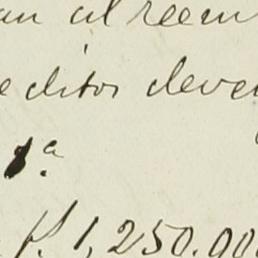 an al reem
editor deve
1ª
f. 1,250.00